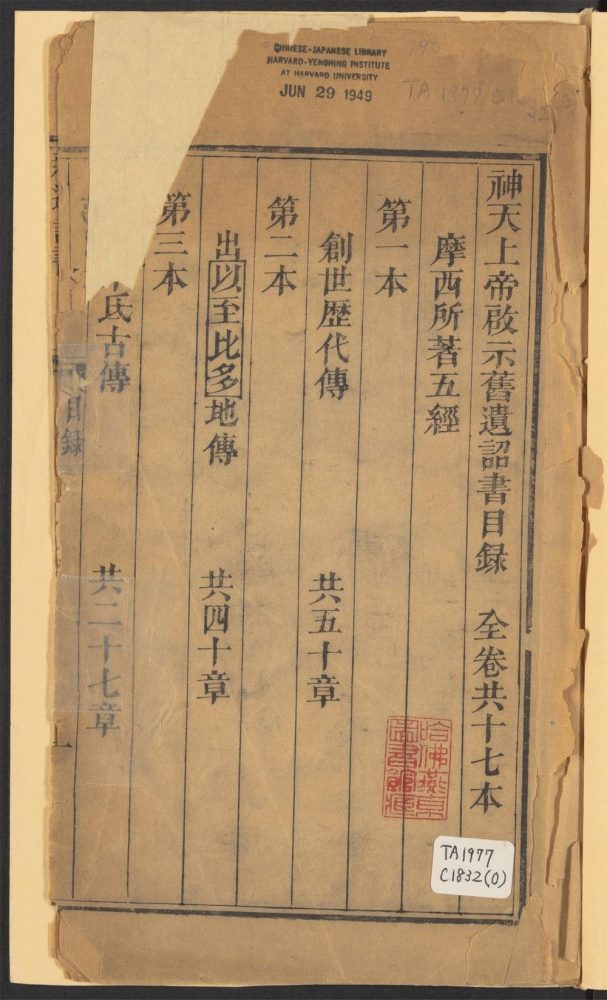 CHINESE-JAPANESE LIBRARY
HARVARD-YENCHING INSTITUTE
AT HARVARD UNIVERSITY
JUN 29 1949
TA 1977
神天上帝啟示舊遺詔書目録 全卷共十七本
摩西所著五經
第一本
創世歷代傳 共五十章
第二本
出以至比多地傳 共四十章
第三本
氏古傳 共二十七章
目録
哈佛燕京
圖書館藏
TA1977
C1832(0)